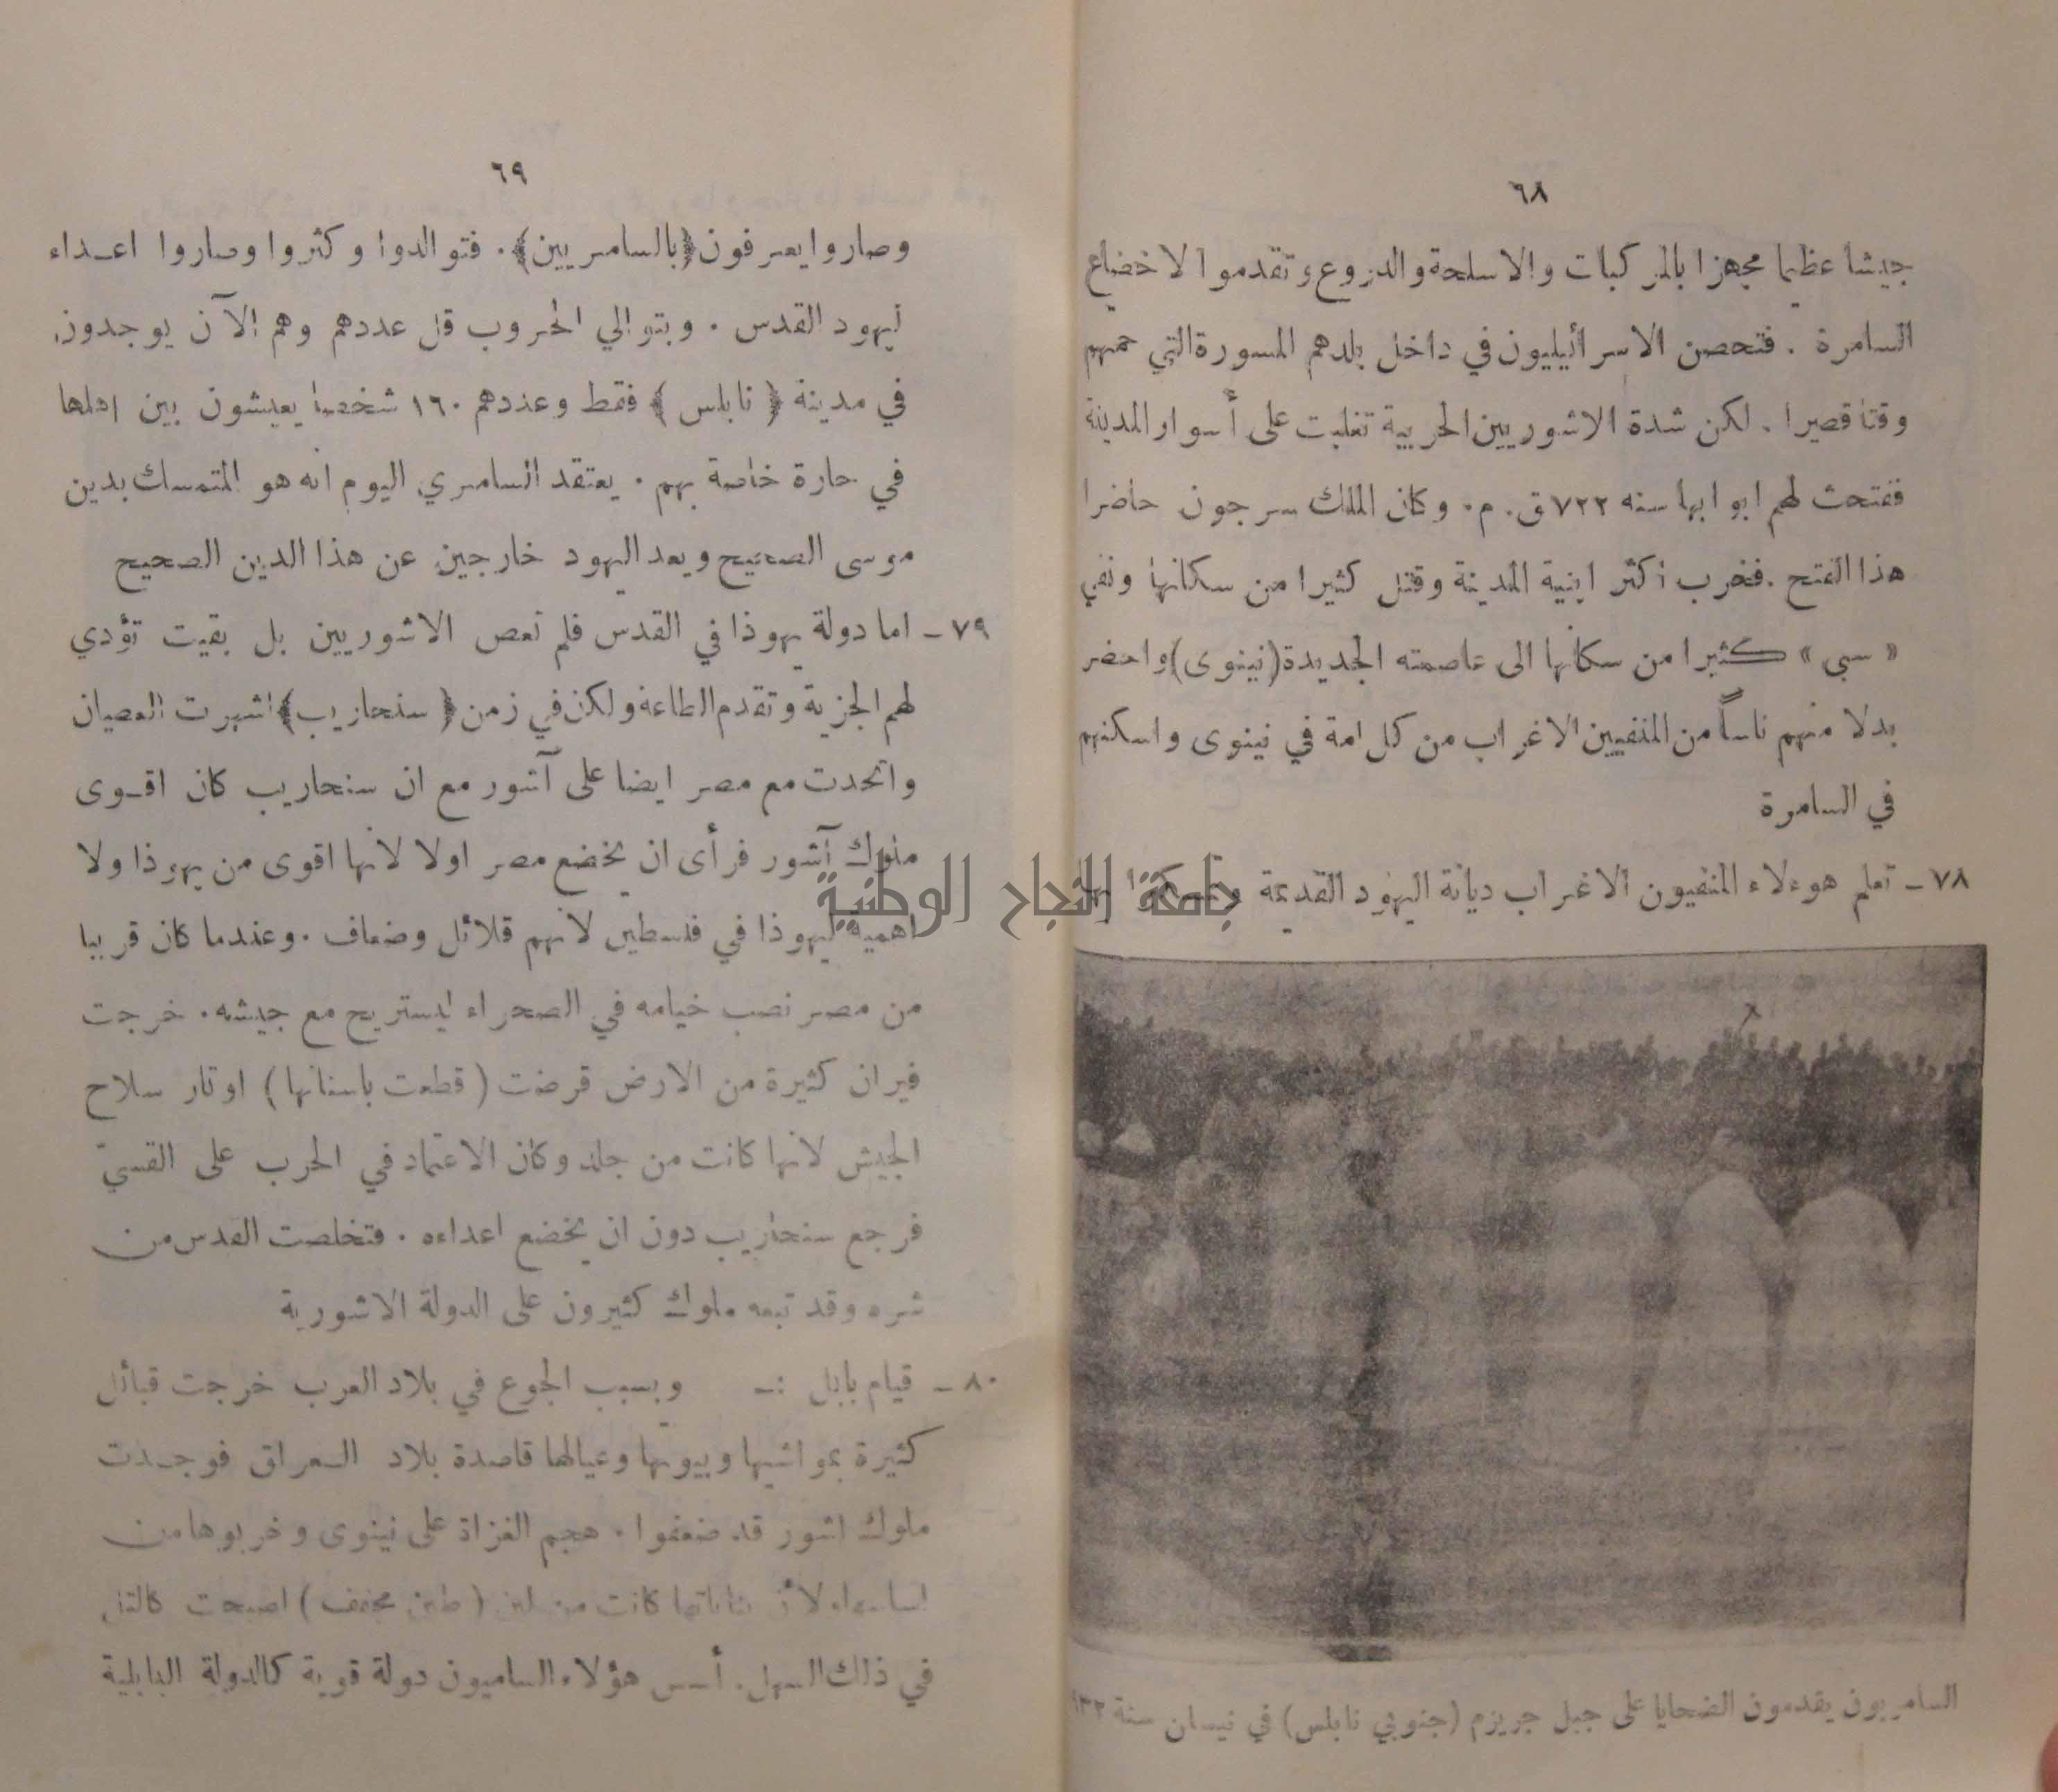 ٦٨
جيشا عظيما مجهزا بالمركبات والاسلحة والدروع وتقدموا لاخضاع
السامرة . فتحصن الاسرائيليون في داخل بلدهم المسورة التي حمتهم
وقتا قصيرا . لكن شدة الاشوريين الحربية تغلبت على أسوار المدينة
ففتحت لهم ابوابها سنه ٧٢٢ ق. م. وكان الملك سرجون حاضرا
هذا الفتح . فخرب اكثر ابنية المدينة وقتل كثيرا من سكانها ونفي
« سبي » كثيرا من سكانها الى عاصمته الجديدة (نينوى) واحضر
بدلا منهم ناساً من المنفيين الاغراب من كل امة في نينوى واسكنهم
في السامرة
٧٨ - تعلم هوءلاء المنفيون الاغراب ديانة اليهود القديمة وتمسكوا بها
جامعة النجاح الوطنية
السامريون يقدمون الضحايا على جبل جريزم (جنوبي نابلس) في نيسان سنة ٩٣٢
٦٩
وصاروا يعرفون ﴿بالسامريين﴾ . فتوالدوا وكثروا وصاروا اعداء
ليهود القدس . وبتوالي الحروب قل عددهم وهم الآن يوجدون
في مدينة ﴿ نابلس ﴾ فقط وعددهم ١٦٠ شخصا يعيشون بين اهلها
في حارة خاصة بهم . يعتقد السامري اليوم انه هو المتمسك بدين
موسى الصحيح ويعد اليهود خارجين عن هذا الدين الصحيح
٧٩ - اما دولة يهوذا في القدس فلم تعص الاشوريين بل بقيت تؤدي
لهم الجزية وتقدم الطاعة ولكن في زمن ﴿ سنحاريب ﴾ اشهرت العصيان
واتحدت مع مصر ايضا على آشور مع ان سنحاريب كان اقوى
ملوك آشور فرأى ان يخضع مصر اولا لانها اقوى من يهوذا ولا
اهمية ليهوذا في فلسطين لانهم قلائل وضعاف . وعندما كان قريبا
من مصر نصب خيامه في الصحراء ليستريح مع جيشه . خرجت
فيران كثيرة من الارض قرضت ( قطعت باسنانها ) اوتار سلاح
الجيش لانها كانت من جلد وكان الاعتماد في الحرب على القسيّ
فرجع سنحاريب دون ان يخضع اعداءه . فتخلصت القدس من
شره وقد تبعه ملوك كثيرون على الدولة الاشورية
٨٠ - قيام بابل :- وبسبب الجوع في بلاد العرب خرجت قبائل
كثيرة بمواشيها وبيوتها وعيالها قاصدة بلاد العراق فوجدت
ملوك اشور قد ضعفوا . هجم الغزاة على نينوى وخربوها من
اساسها لأن بناياتها كانت من لبن ( طين مجفف ) اصبحت كالتل
في ذلك السهل . أسس هؤلاء الساميون دولة قوية كالدولة البابلية